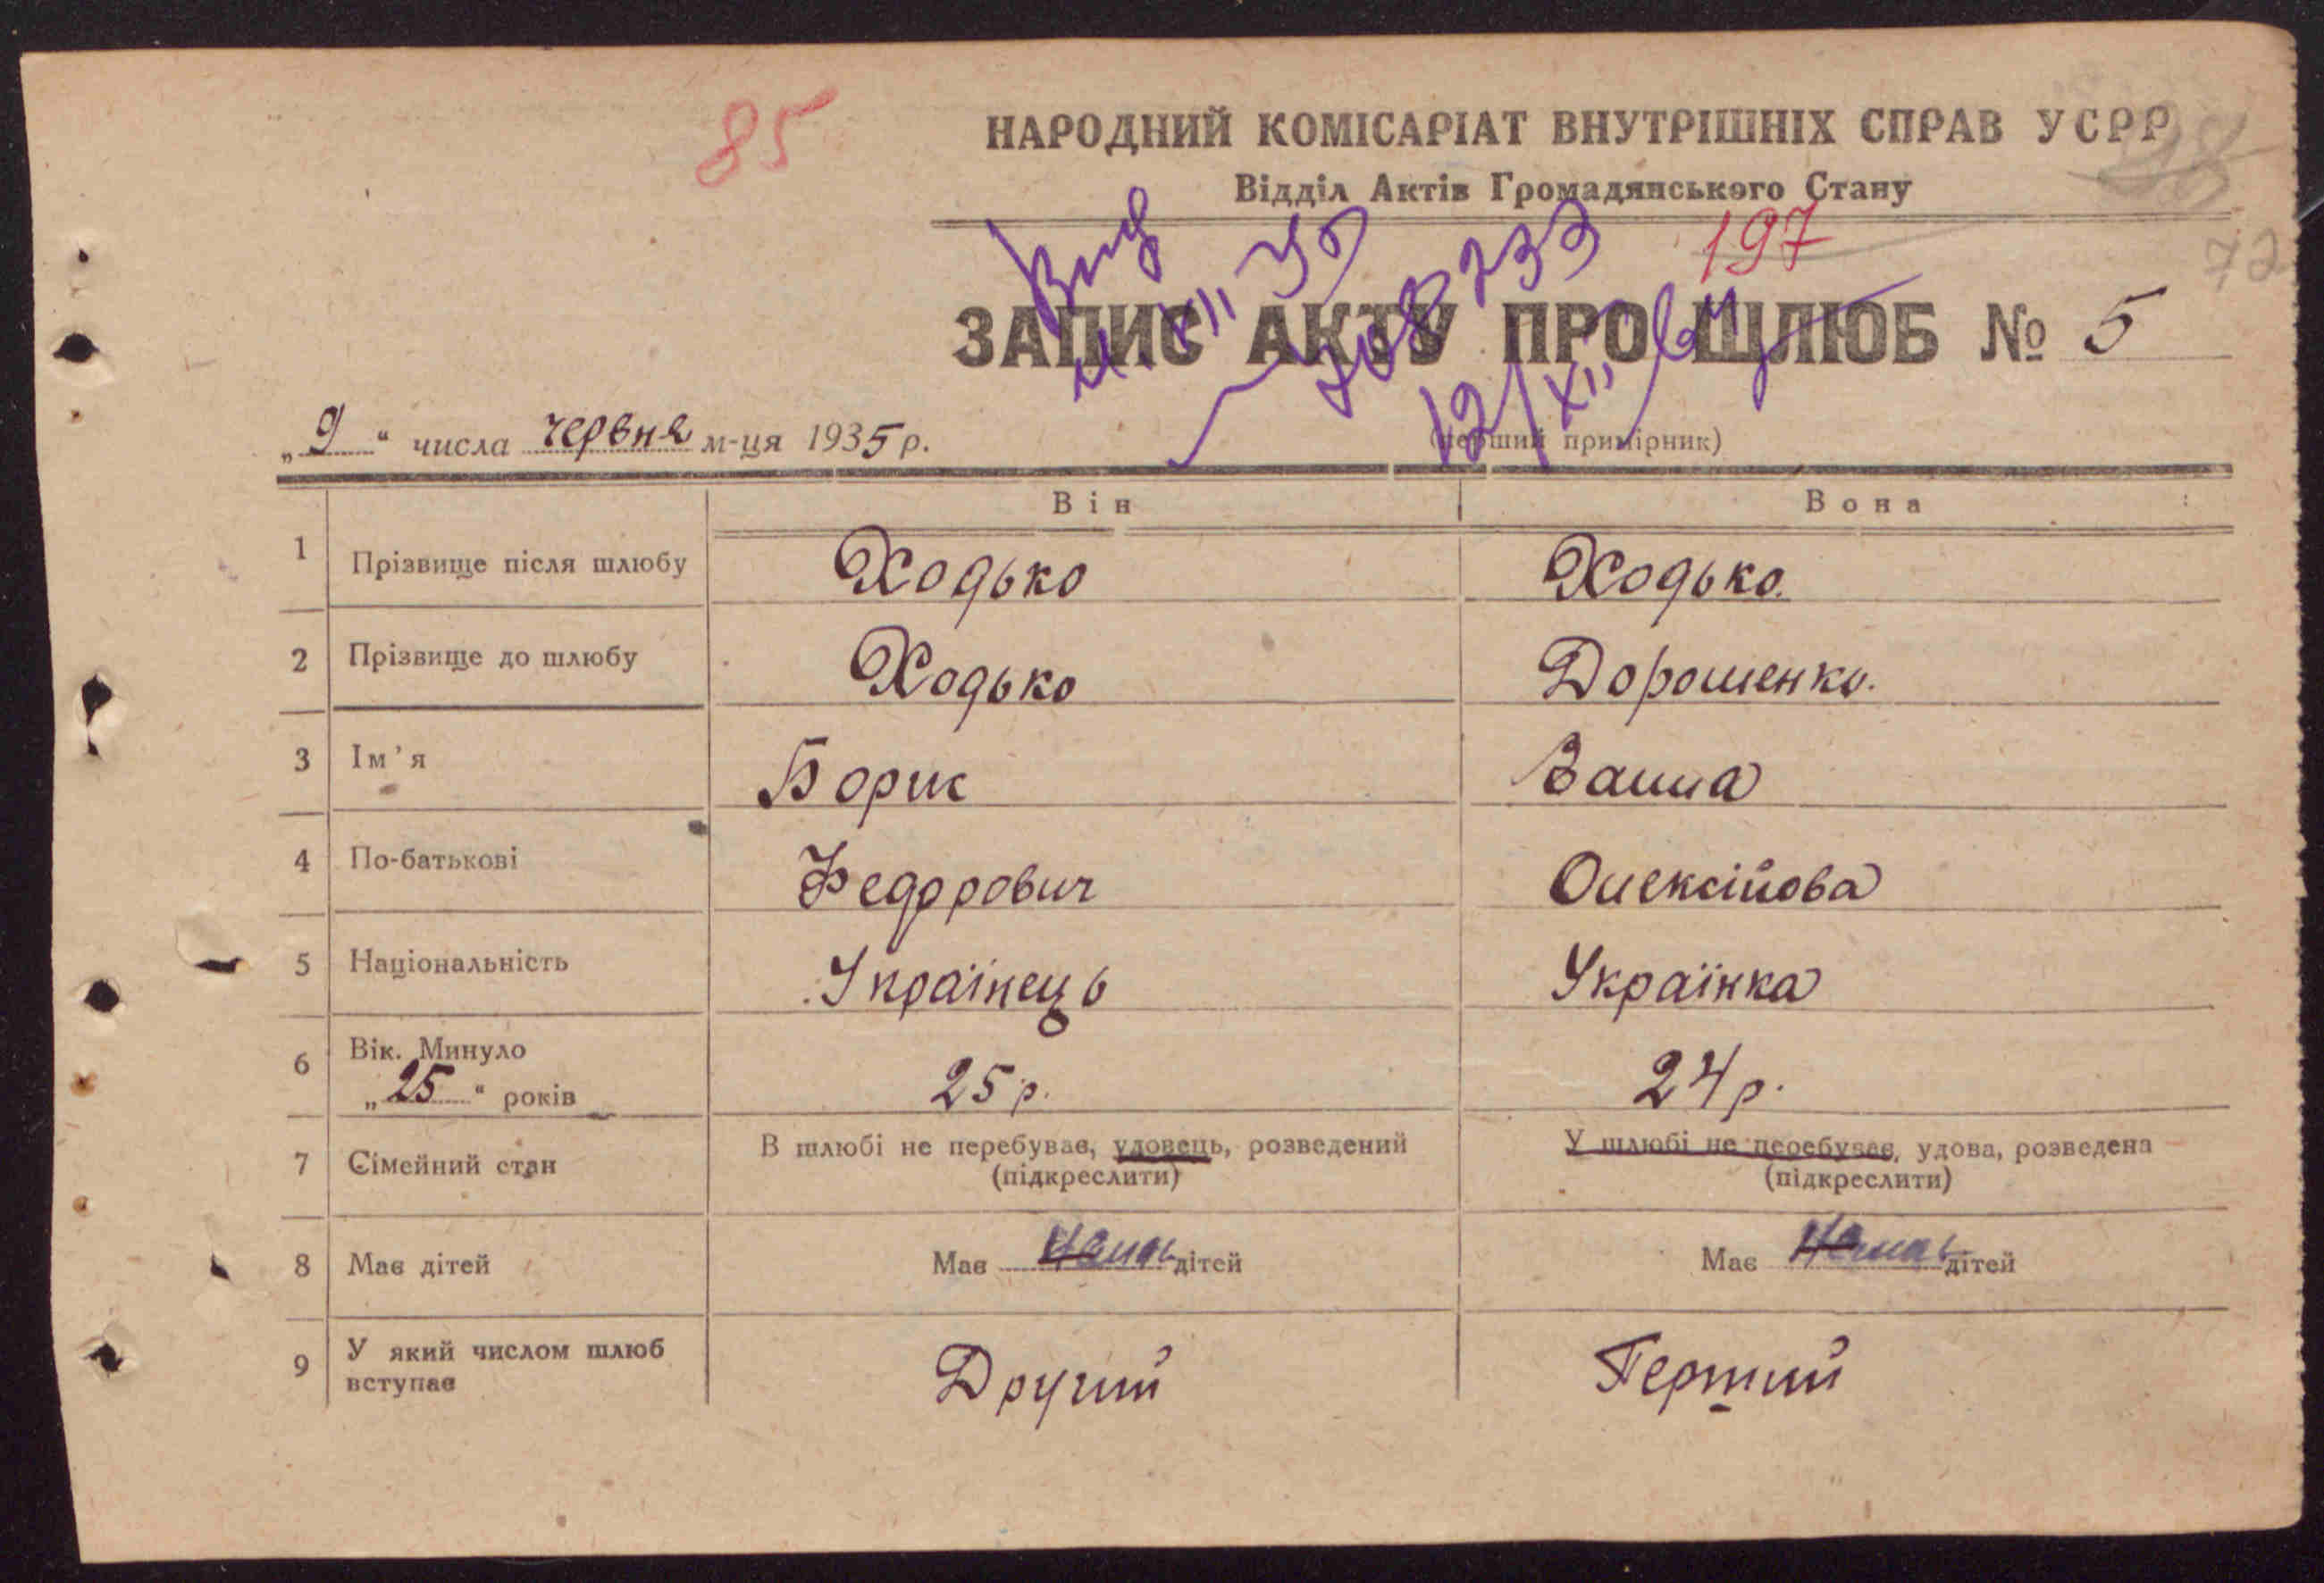 85
НАРОДНИЙ КОМІСАРІАТ ВНУТРІШНІХ СПРАВ УСРР
Відділ Актів Громадянського Стану
197
72
ЗАПИС АКТУ ПРО ШЛЮБ № 5
„9“ числа червня м-ця 1935 р.
(перший примірник)
Він Вона
1 Прізвище після шлюбу Ходько Ходько.
2 Прізвище до шлюбу Ходько Дорошенко.
3 Ім'я Борис
4 По-батькові Федорович Олексійова
5 Національність Українець Українка
6 Вік. Минуло
„25“ років 25 р. 24 р.
7 Сімейний стан В шлюбі не перебуває, удовець, розведений У шлюбі не перебуває, удова, розведена
(підкреслити) (підкреслити)
8 Має дітей Має дітей Має дітей
9 У який числом шлюб
вступає Другий Перший